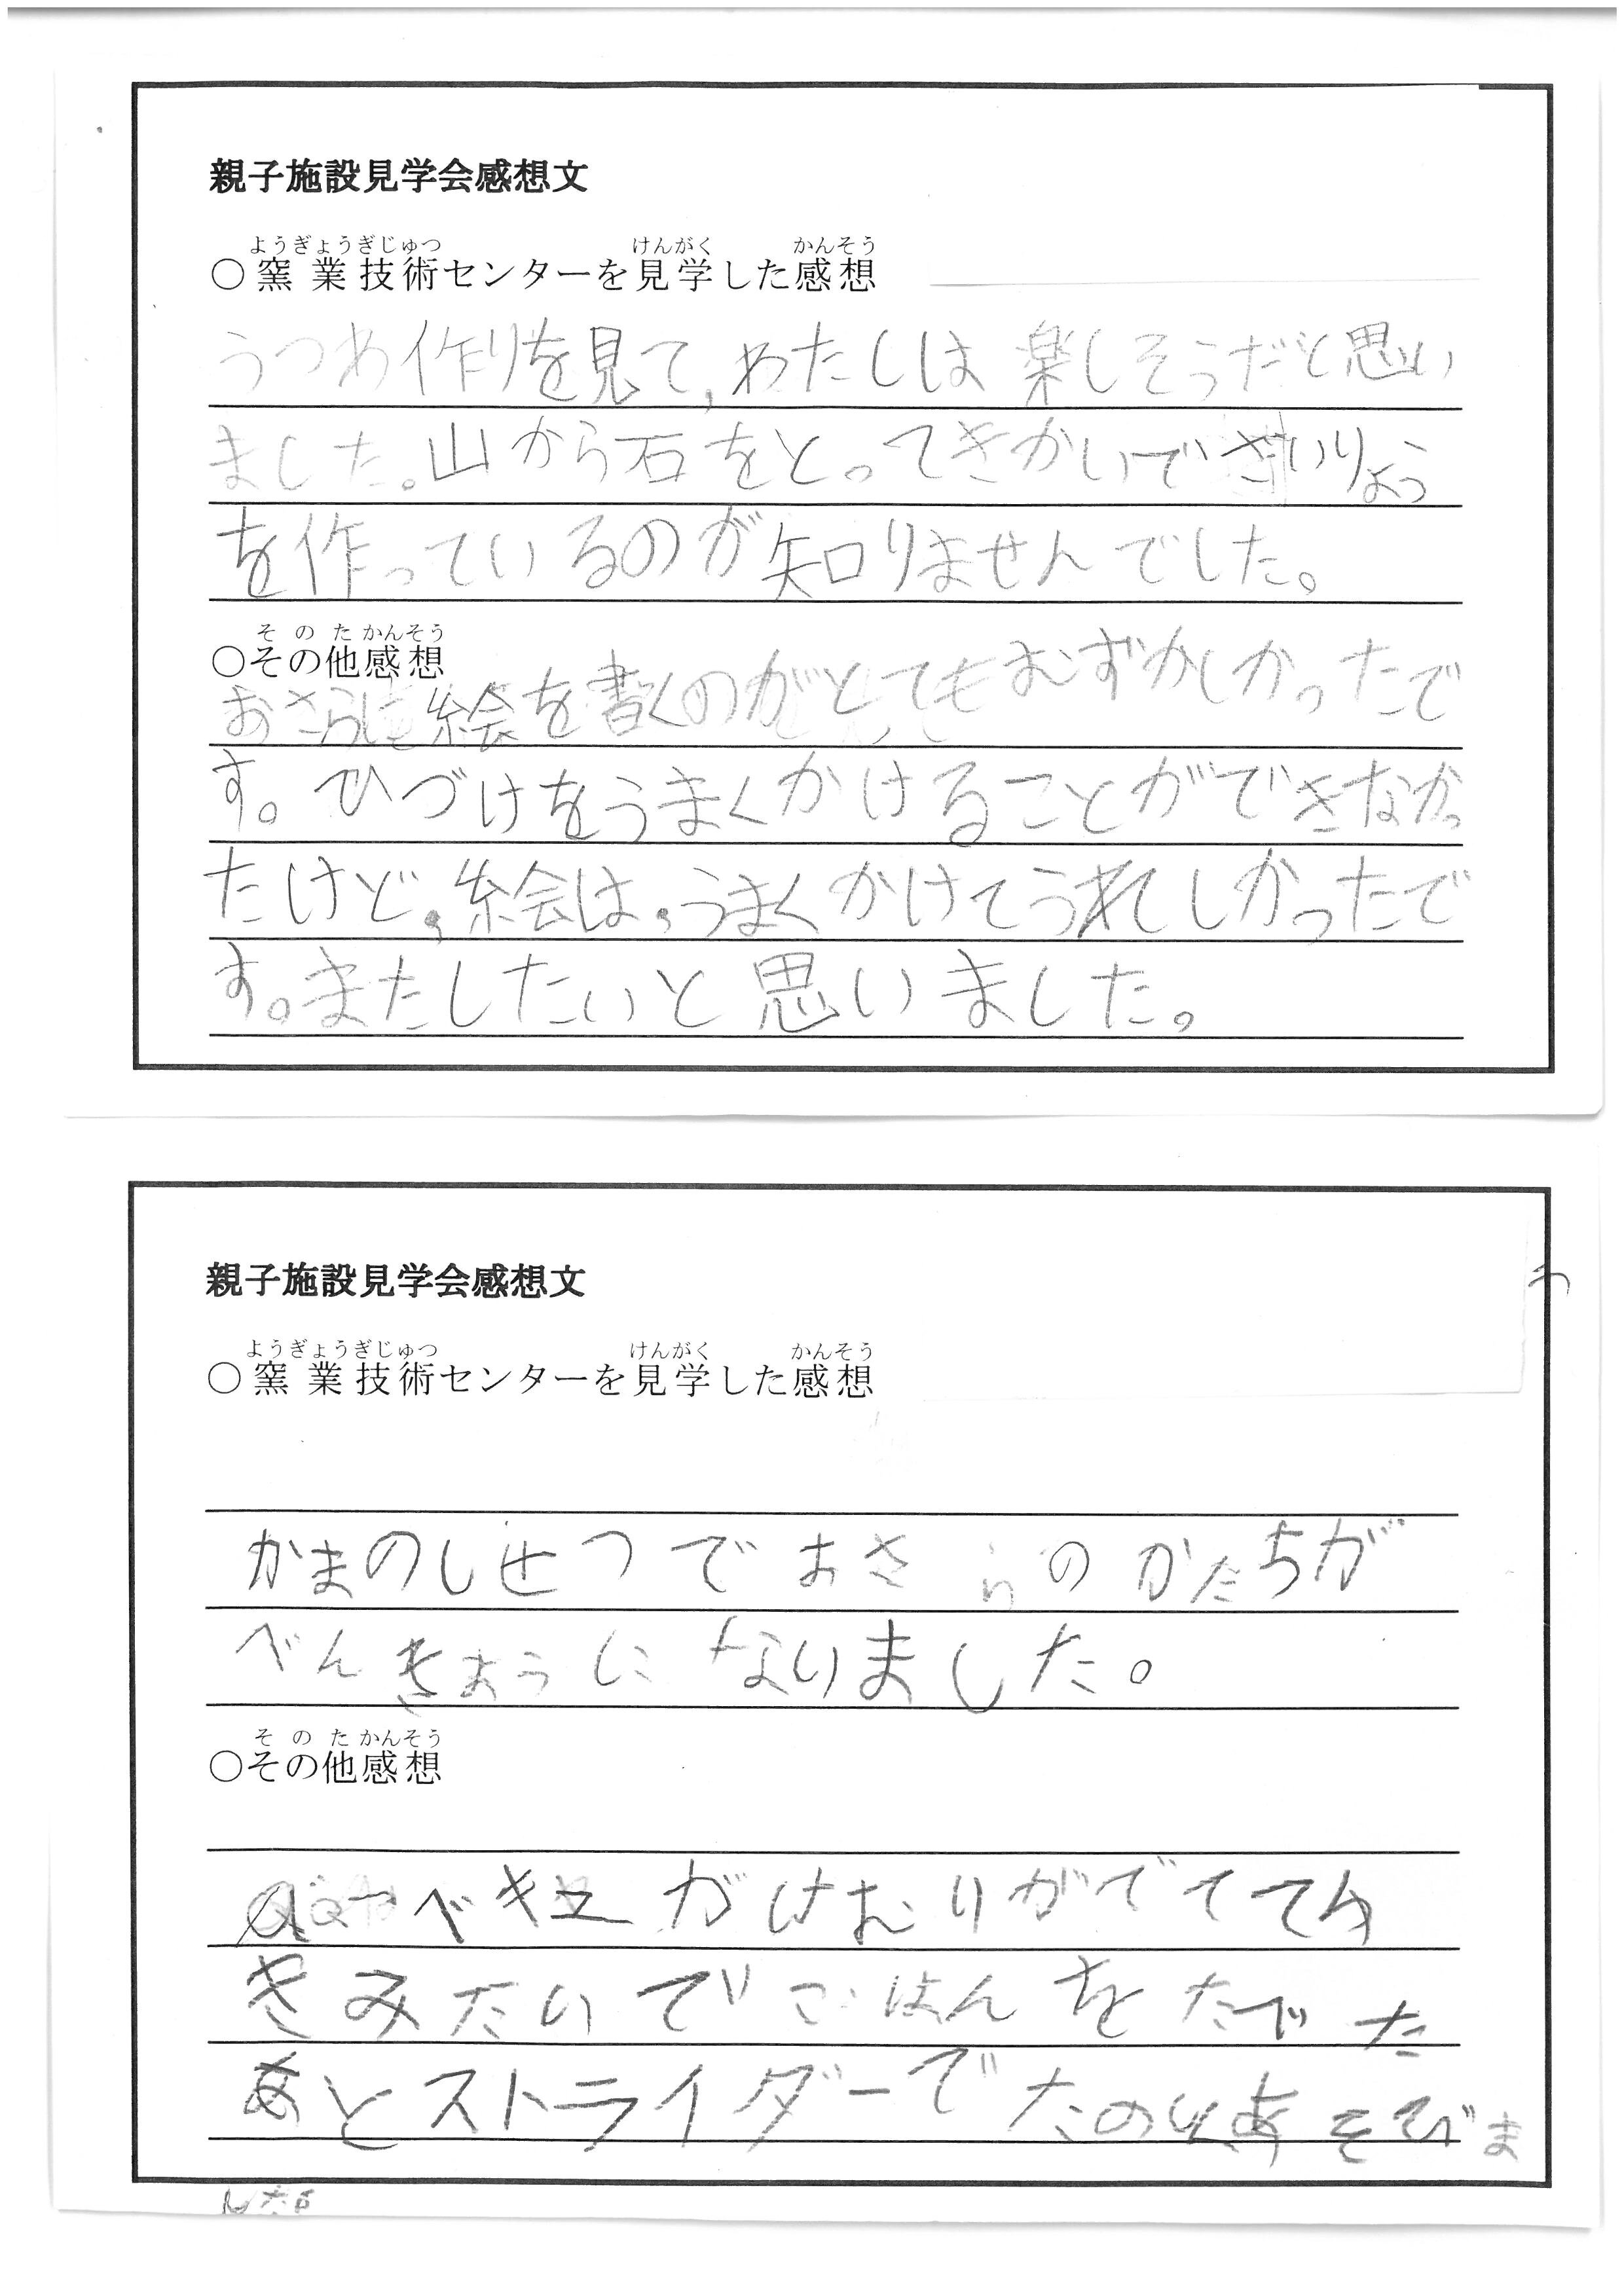 親子施設見学会感想文
ようぎょうぎじゅつ けんがく かんそう
○窯業技術センターを見学した感想
うつわ作りを見て,わたしは楽しそうだと思い
ました。山から石をとってきかいでざいりょう
を作っているのが知りませんでした。
そのたかんそう
○その他感想
おさらに絵を書くのがとてもむずかしかったで
す。ひづけをうまくかけることができなかっ
たけど,絵は,うまくかけてうれしかったで
す。またしたいと思いました。
親子施設見学会感想文
ようぎょうぎじゅつ けんがく かんそう
○窯業技術センターを見学した感想
かまのしせつでおさらのかたちが
べんきょうになりました。
そのたかんそう
○その他感想
ばーべキューがけむりがでてて
きみたいでごはんをたべた
あとストライダーでたのしくあそびま
した。